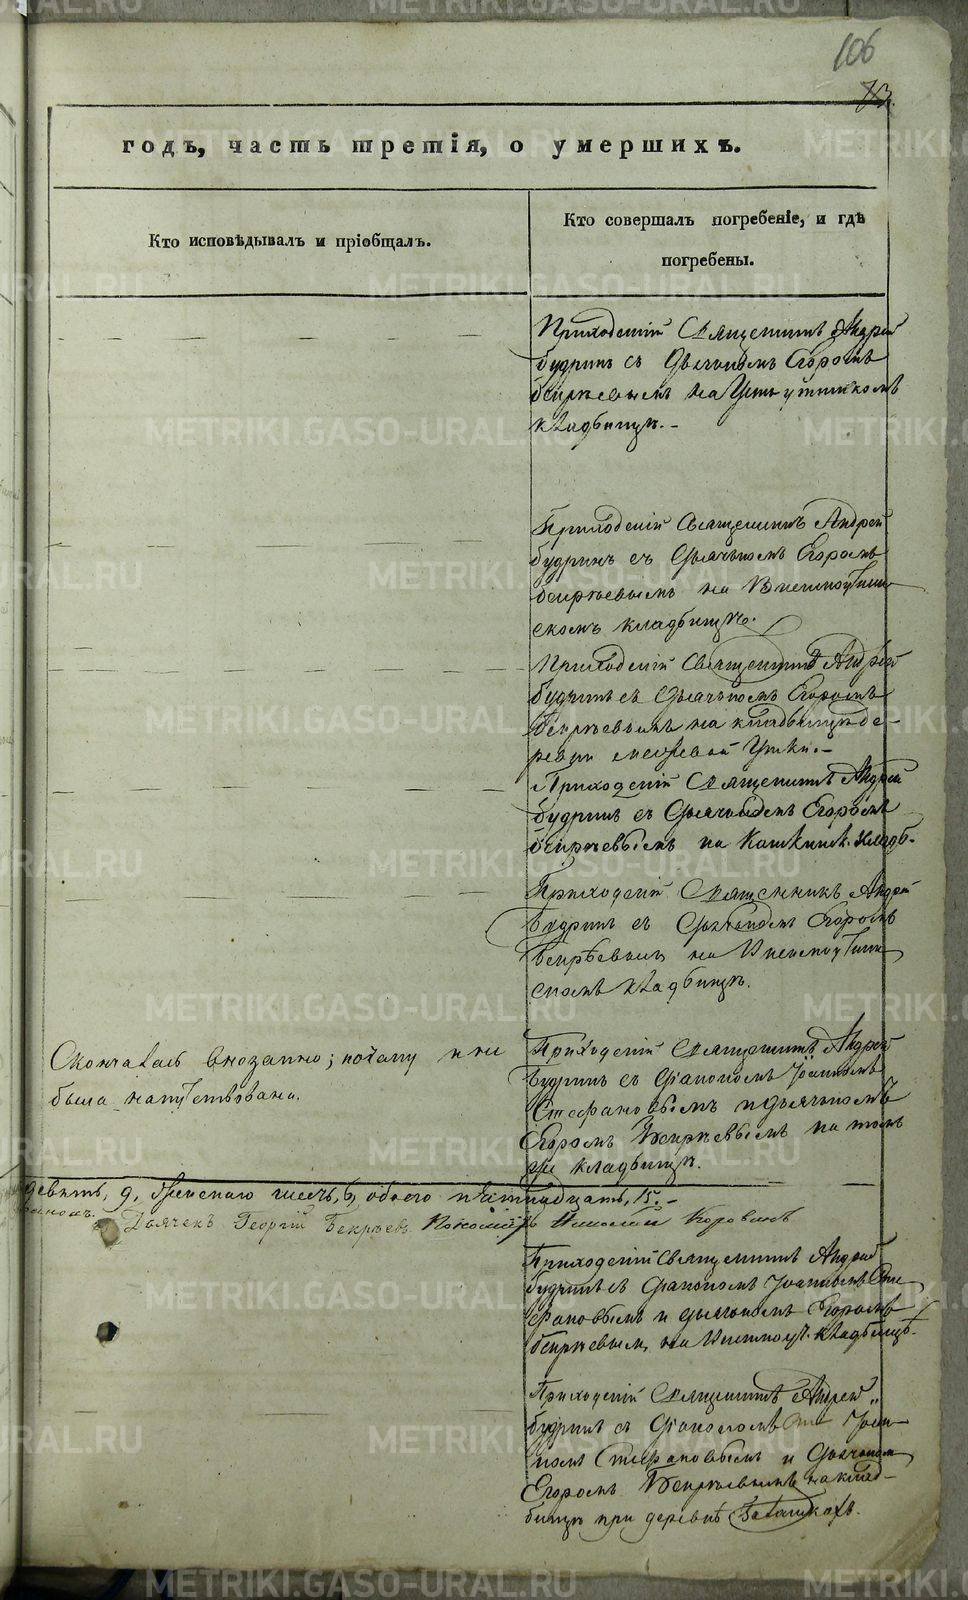 106
73.
годъ, часть третія, о умершихъ.
Кто исповѣдывалъ и пріобщалъ.
Кто совершалъ погребеніе, и гдѣ
погребены.
Приходскій Священникъ Андрей
Будринъ съ Дьячкомъ Егоромъ
Бекрѣевымъ на Усть утинскомъ
кладбищѣ.-
Приходскій Священникъ Андрей
Будринъ съ Дьячкомъ Егоромъ
Бекрѣевымъ на
скомъ кладбищѣ.
Приходскій Священникъ Андрей
Будринъ съ Дьячкомъ Егоромъ
Бекрѣевымъ на кладбищѣ де-
ревни Межевой Утки.-
Приходскій Священникъ Андрей
Будринъ съ Дьячкомъ Егоромъ
Бекрѣевымъ на Кашкинск. кладб.
Приходскій Священникъ Андрей
Будринъ съ Дьячкомъ Егоромъ
Бекрѣевымъ на
скомъ кладбищѣ.
Скончалась внезапно; потому и не
была напутствована.
Приходскій Священникъ Андрей
Будринъ съ Діакономъ Іоанномъ
Стефановымъ и дьячкомъ
Егоромъ Бекрѣевымъ на томъ
же кладбищѣ.
девять, 9, Женскаго шесть, 6, обоего пятнадцать, 15.-
Дьячекъ Георгій Бекрѣевъ Пономарь Николай Коровинъ
Приходскій Священникъ Андрей
Будринъ съ Діакономъ Іоанномъ Сте
фановымъ и дьячкомъ Егоромъ
Бекрѣевым, на кладбищѣ.
Приходскій Священникъ Андрей
Будринъ съ Діакономъ Іоан-
номъ Стефановымъ и Дьячкомъ
Егоромъ Бекрѣевымъ на клад-
бищѣ при деревнѣ Галашкахъ.
METRIKI.GASO-URAL.RU